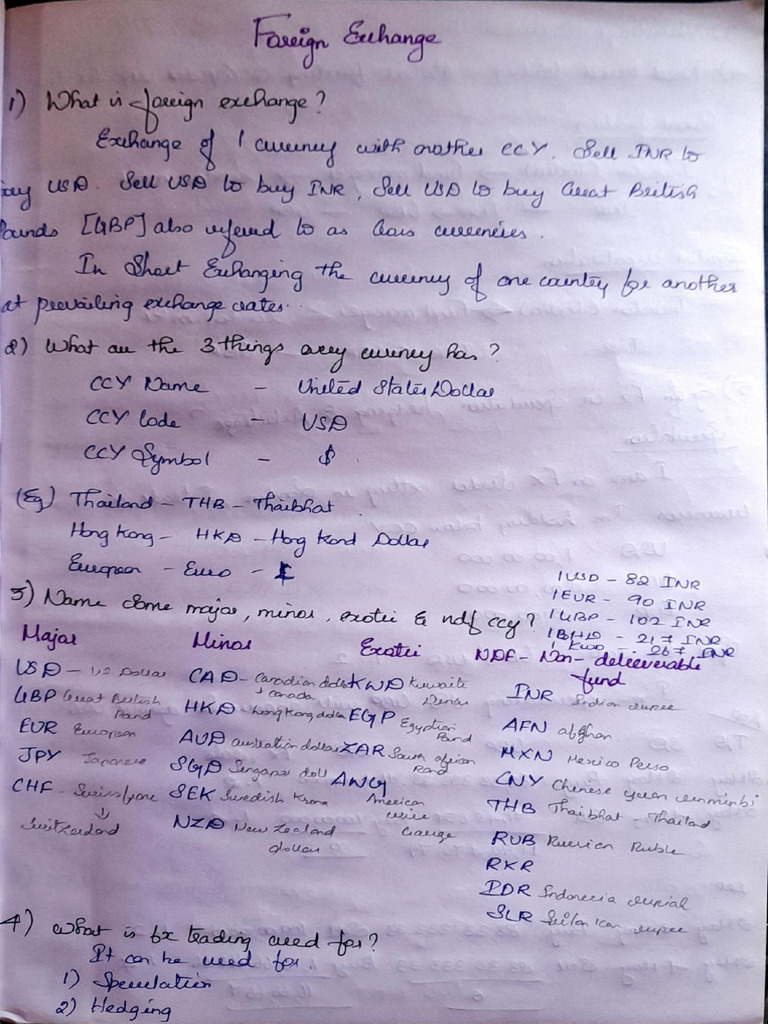 Foreign Exchange
1) What is foreign exchange?
Exchange of 1 currency with another CCY. Sell INR to
buy USD. Sell USD to buy INR, Sell USD to buy Great British
Pounds [GBP] also refered to as Cross currencies.
In Short Exchanging the currency of one country for another
at prevailing exchange rates.
2) What are the 3 things every currency has?
CCY Name - United States Dollar
CCY Code - USD
CCY Symbol - $
(Eg) Thailand - THB - Thaibhat
Hong Kong - HKD - Hong Kond Dollar
European - Euro - £
1 USD - 82 INR
1 EUR - 90 INR
1 GBP - 102 INR
1 BHD - 217 INR
1 KWD - 267 INR
3) Name some major, minor, exotic & ndf ccy?
Major Minor Exotic NDF - Non-deleeverable fund
USD - US Dollar
GBP Great British Pand
EUR European
JPY Japanese
CHF - Swiss
Switzerland
CAD - Canadian dollar
Canada
HKD - hong kong dollar
AUD australian dollar
SGD Singapor doll
SEK Swedish Krona
NZD New Zealand dollar
KWD Kuwaite Dinar
EGP Egyptian Pand
ZAR South african Rand
AWG
American wire Gauge
INR Indian rupee
AFN afghan
MXN Mexico Peso
CNY Chinese yuan renminbi
THB Thaibhat - Thailad
RUB Russian Ruble
RKR
IDR Indonesia rupial
SLR Srilankan rupee
4) What is fx trading used for?
It can be used for.
1) Speculation
2) Hedging